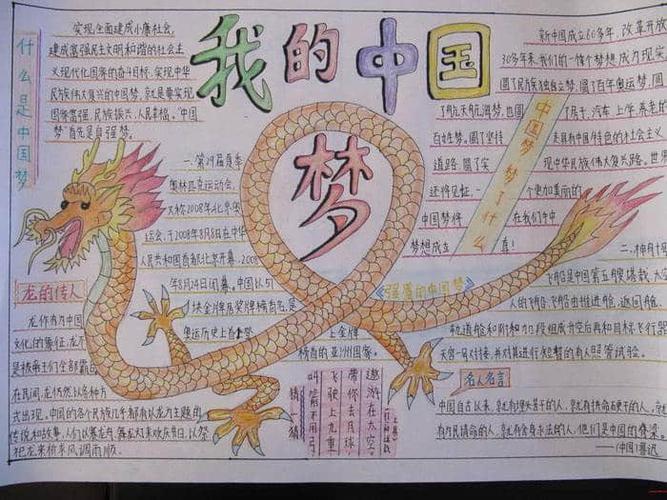 我的中国
梦
什么是中国梦
实现全面建成小康社会,
建成富强民主文明和谐的社会主
义现代化国家的奋斗目标,实现中华
民族伟大复兴的中国梦,就是要实现
国家富强、民族振兴、人民幸福。“中国
梦”首先是自强梦。
一.第29届夏季
奥林匹克运动会,
又称2008年北京奥
运会,于2008年8月8日在中华
人民共和国首都北京开幕,2008
年8月24日闭幕。中国以51
块金牌居奖牌榜首名,是
奥运历史上首个
上金牌
榜首的亚洲国家。
龙的传人
龙作为中国
文化的象征,龙不
在民间,龙仍然以各种方
式出现,中国的各个民族几乎都有以龙为主题的
传说和故事,人们以赛龙舟、舞龙灯来欢庆节日,以祭
祀龙来祈求风调雨顺。
新中国成立60多年,改革开放
30多年来,我们的一饿个梦想成为现实
圆了民族独立梦,圆了百年奥运梦,圆
了航天航海梦,也圆
了房子、汽车、上学、养老
百姓梦。圆了坚持
走具有中国特色的社会主义
道路,圆了实
现中华民族伟大复兴路。世
还将见证,一
个更加美丽的
中国梦将
在我们手中
梦想成立
真!
中国梦 梦了什么
强盛的中国梦
二.神舟十号
飞船是中国第五艘载
人的飞船,飞船由推进舱、返回舱、
轨道舱和附加段组成,升空后再和目标飞行器
天宫一号对接,并对其进行短暂的有人照管试验。
猜猜
叫箭不用弓
飞驶上九重
带你去月球
遨游在太空
名人名言
中国自古以来,就有埋头苦干的人,就有拼命硬干的人,就
有为民请命的人,就有舍身求法的人,他们是中国的脊梁。
——(中国)鲁迅